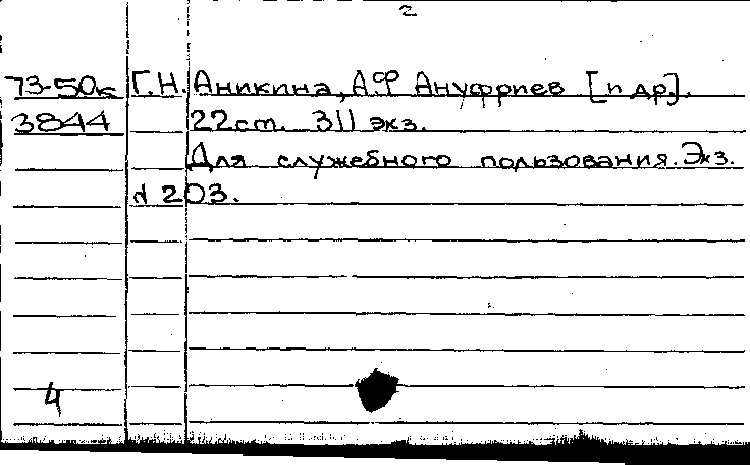 2
73-50к Г.Н. Аникина, А.Ф Ануфриев [и др].
3844 22 ст. 311 экз.
Для служебного пользования. Экз.
№ 203.
4